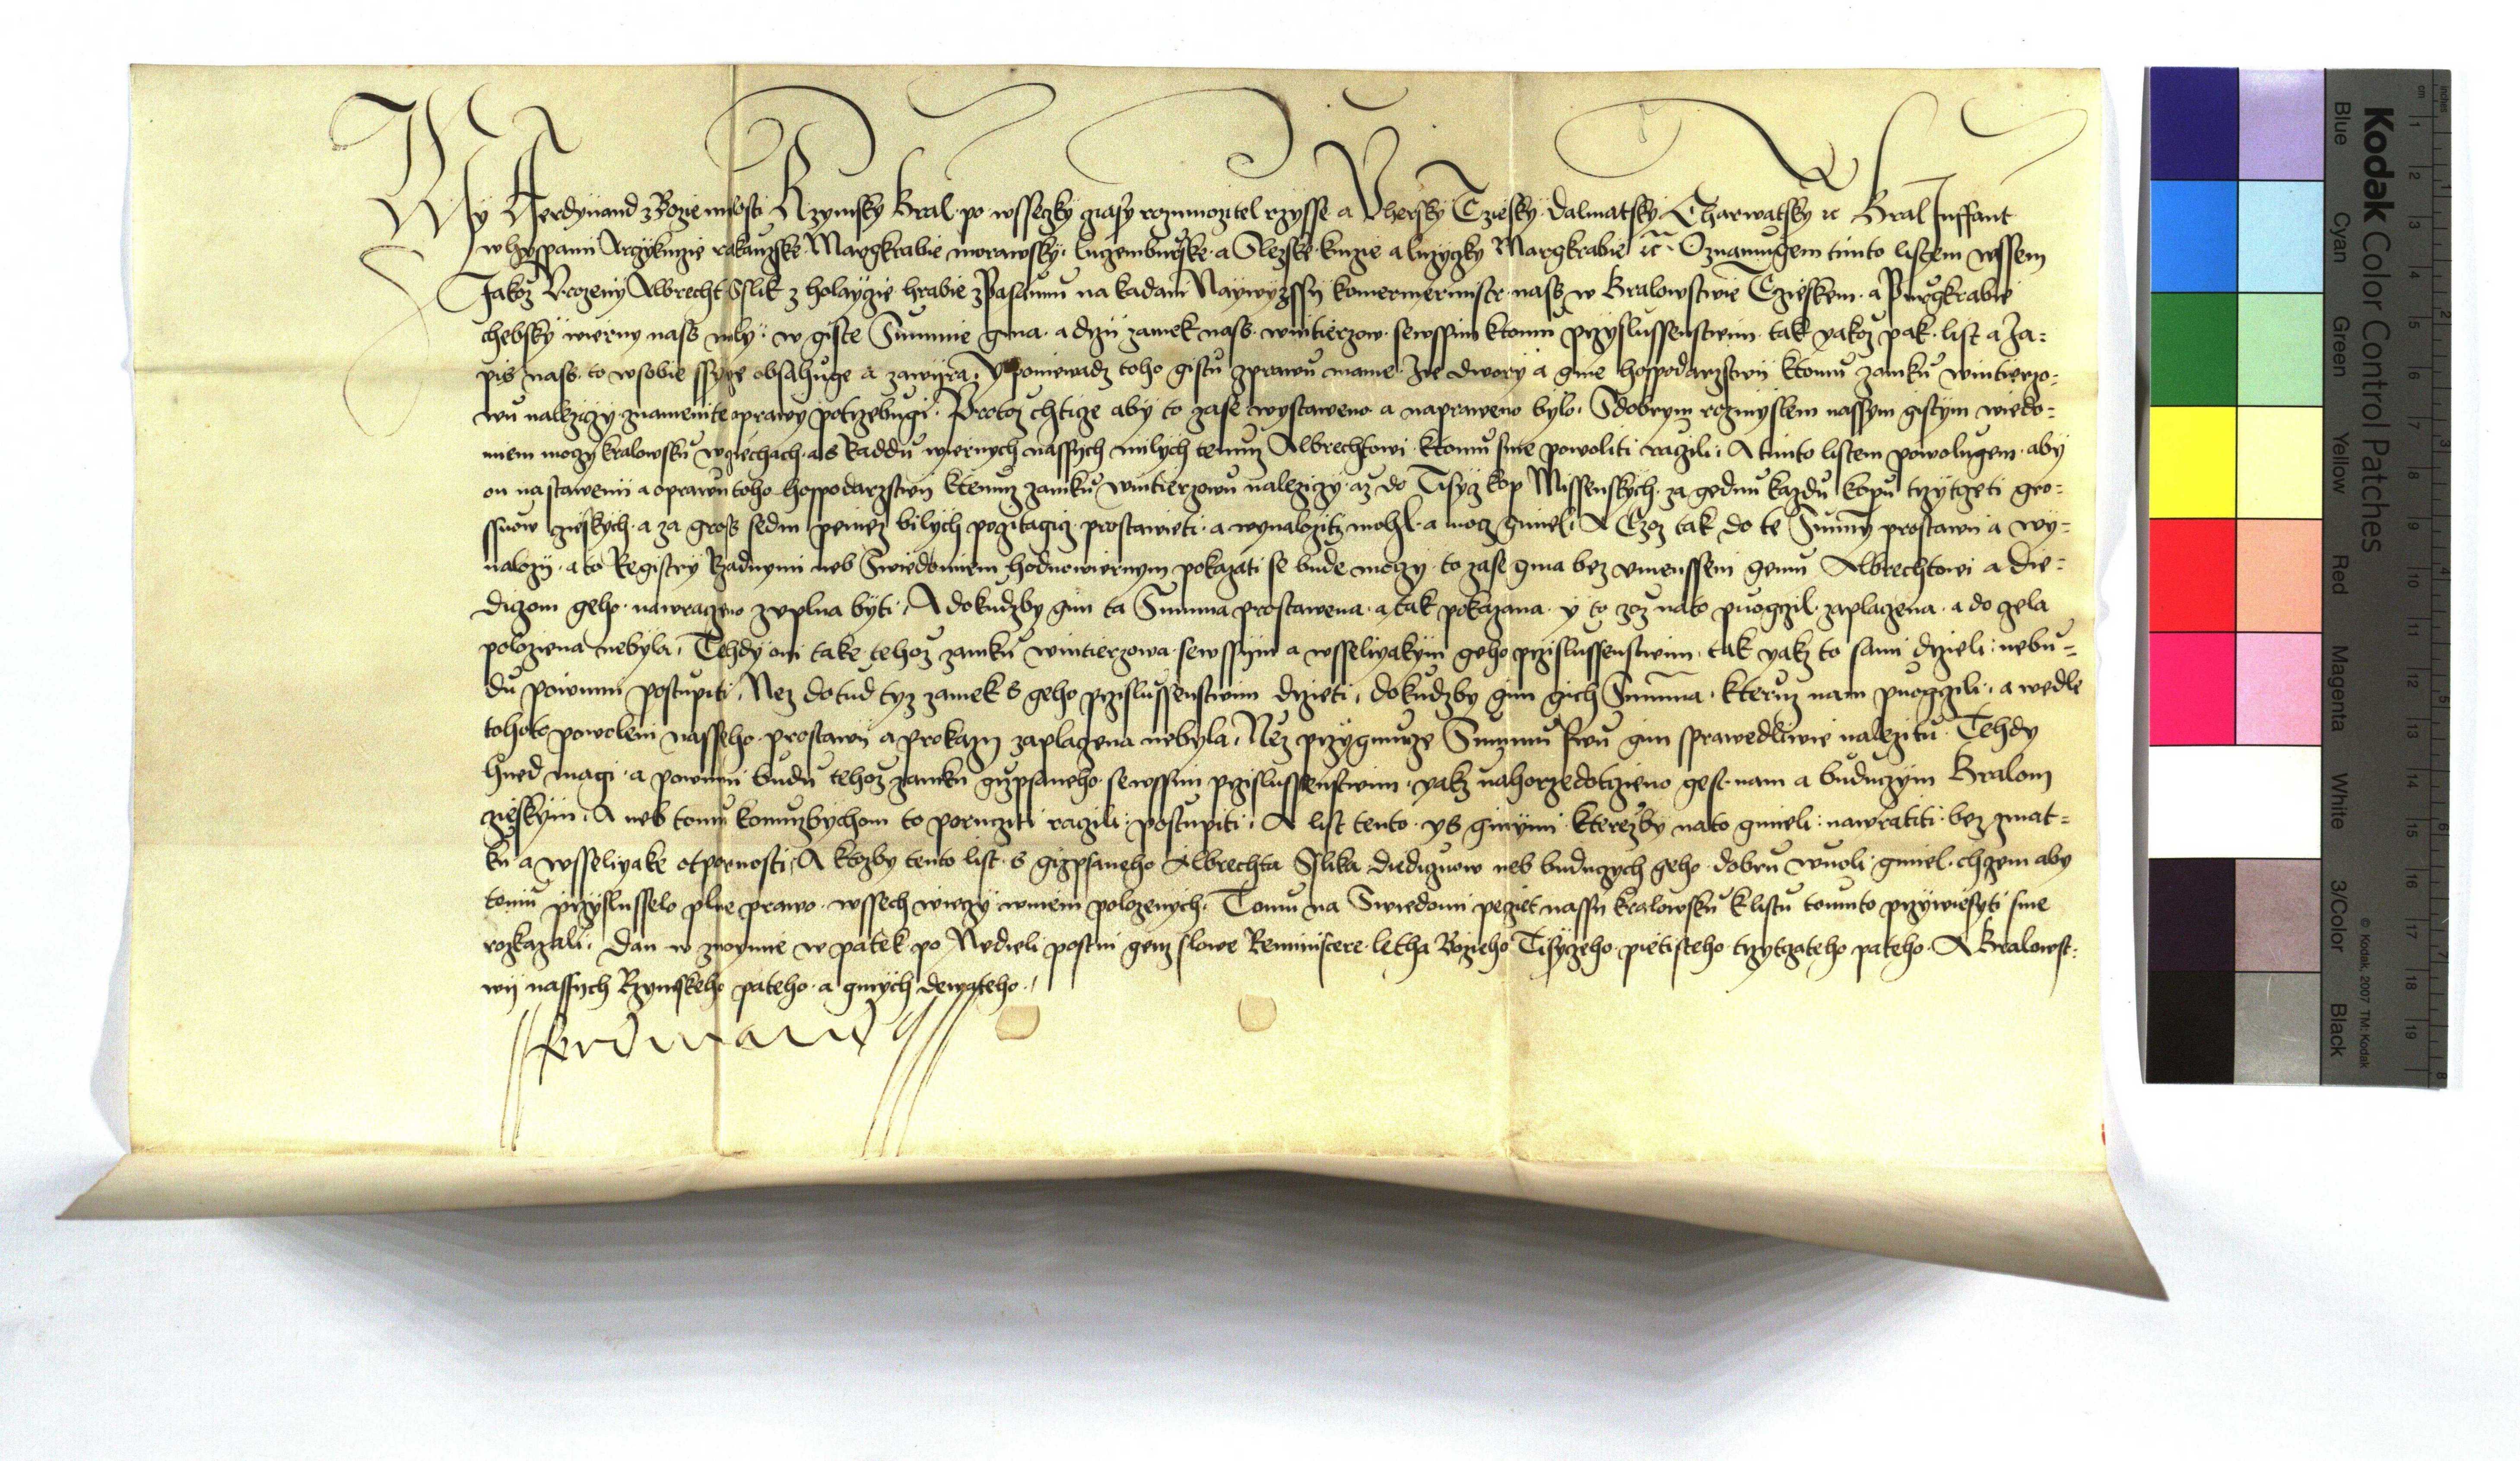 My Ferdynand z Bozie milosti Rzymsky Kral po wsseczky cziasy rozmnozitel rzysse a Vhersky Cziesky Dalmatsky Charwatsky ꝛc Kral Inffant
w hyspanii Arczyknizie rakauzske Margkrabie morawsky luczemburske a Slezske knizie a luzyczky Margkrabie ꝛc Oznamugem timto listem wssem
Jakoz Vrozeny Albrecht Sslik z holaycze hrabie z Pasaunu na kadani Naywyzssy komermermistr nass w Kralowstwie Czieskem a Purgkrabie
chebsky wierny nass mily w giste Summie gma a drzi zamek nass wintierzow sewssim ktomu przyslussenstwim tak yakoz pak list a Za=
pis nass to wsobie ssyrze obsahuge a zawijra Y poniewadz toho gistu zprawu mame ze dwory a gine hospodarzstwij ktomu zamku wintierzo=
wu nalezyczy znamenite oprawy potrzebugi Protoz chticze aby to zase wystaweno a naprаweno bylo Sdobrym rozmyslem nassym gistym wiedo=
miem moczy kralowsku w cziechach a s Raddu wiernych nassych milych temuz Albrechtowi ktomu sme powoliti raczili A timto listem powolugem aby
on nastawenij a oprawu toho hospodarzstwij ktemuz zamku wintierzowu nalezyczy az do Tisycz kop Missenskych za gednu kazdu kopu trzytczeti gro=
ssuow czieskych a za gross sedm peniez bilych pocztagicz prostawieti a wynalozitj mohl a mocz gmiel A Czoz tak do te Summy prostawi a wy=
nalozy a to Registry Rzadnymi neb Swiedomiem hodnowiernym pokazati se bude moczy to zase gma bez vmensseni gemu Albrechtowi a die=
diczom geho nawraczeno zvplna byti A dokudzby gim ta Summa prostawena a tak pokazana y to czoz nato puogczil zaplaczena a do cziela
polozena nebyla Tehdy oni take tehoz zamku wintierzowa sewssym a wsseliyakym geho przislussenstwim tak yakz to sami drzieli nebu=
du powinni postupiti Nez dotud tyz zamek s geho przislussenstwim drzieti dokudzby gim gich Summa kteruz nam puogczili a wedle
tohoto powoleni nasseho prostawij a prokazy zaplaczena nebyla Nez przygmucze Summu swu gim sprawedliwie nalezitu Tehdy
hned magi a powinni budu tehoz zamku gizpsaneho sewssim przislussenstwim yakz nahorzedotczieno gest nam a buduczym Kralom
czieskym A neb tomu komuzbychom to porucziti raczili postupiti A list tento ys ginymi kterezby nato gmieli nawratiti bez zmat=
ku a wsseliyake otpornosti A ktozby tento list s gizpsaneho Albrechta Sslika diediczuow neb buduczych geho dobru wuoli gmiel chczem aby
tomu przyslusselo plne prawo wssech wieczy wniem polozenych Tomu na Swiedomi peczet nassu kralowsku k listu tomuto przywiesyti sme
rozkazali Dan w znoymie w patek po Nedieli postni genz slowe Reminiscere letha Bozieho Tisyczeho pietisteho trzytczateho pateho A Kralowst=
wij nassych Rzymskeho pateho a ginych dewateho
Ferdinand
Kodak Color Control Patches
Blue Cyan Green Yellow Red Magenta White 3/Color Black
© Kodak, 2007 TM: Kodak
cm 1 2 3 4 5 6 7 8 9 10 11 12 13 14 15 16 17 18 19
inches 1 2 3 4 5 6 7 8